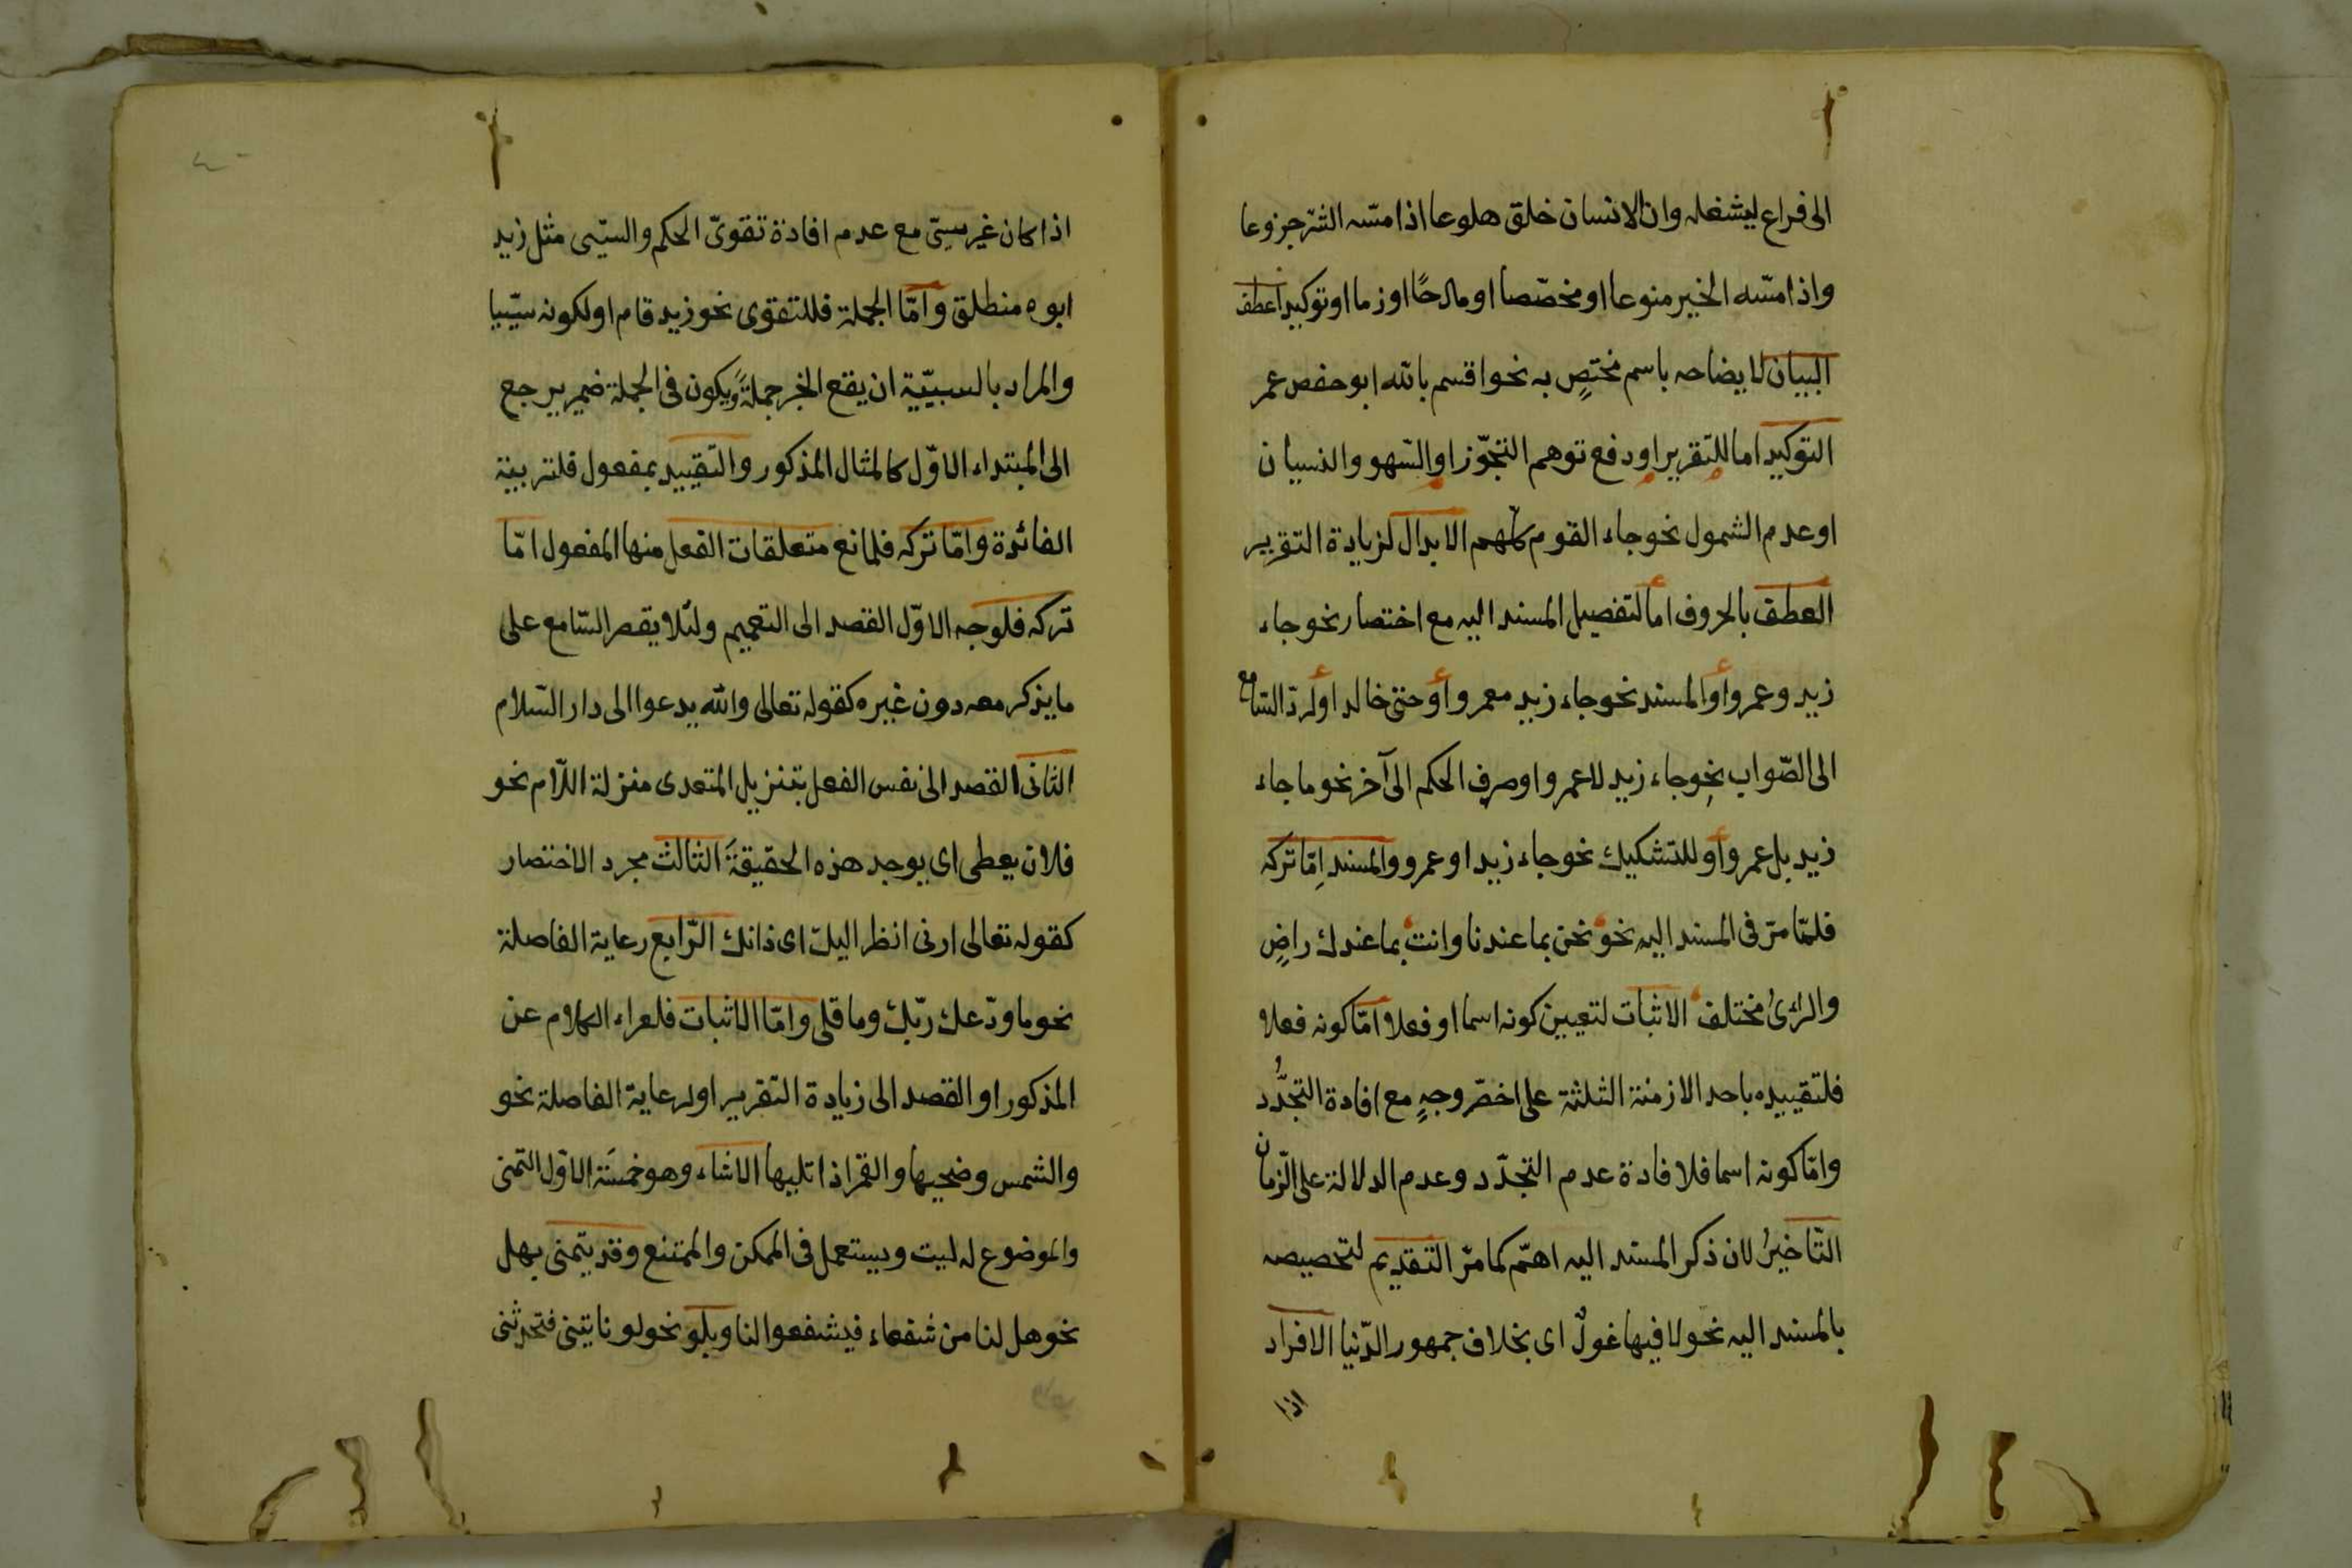 الى فراغ ليشغله وان الانسان خلق هلوعا اذا مسّه الشرّ جزوعا
واذا مسّه الخير منوعا او مخصّصا او مادحًا او ذما او توكيدا عطف
البيان لايضاحه باسم مختصٍ به نحو اقسم بالله ابو حفص عمر
التوكيد اما للتقرير او دفع توهم التجوّز او السّهو والنسيان
او عدم الشمول نحو جاء القوم كلّهم الابدال لزيادة التقرير
العطف بالحروف اما لتفصيل المسند اليه مع اختصار نحو جاء
زيد وعمرو أو المسند نحو جاء زيد معمرو أو حتى خالد او لردّ السّامع
الى الصّواب نحو جاء زيد لا عمرو او صرف الحكم الى آخر نحو ما جاء
زيد بل عمرو أو للتشكيك نحو جاء زيد او عمرو والمسند اِمّا تركه
فلمّا مرّ فى المسند اليه نحو نحن بما عندنا وانت بما عندك راضٍ
والرّئُ مختلف الاثبات لتعيين كونه اسما او فعلا امّا كونه فعلا
فلتقييده باحد الازمنة الثلثة على اخصّر وجهٍ مع افادة التجدُّد
وامّا كونه اسما فلافادة عدم التجدّد وعدم الدلالة على الزّمان
التّاخيرُ لان ذكر المسند اليه اهمّ كما مرّ التقديم لتخصيصه
بالمسند اليه نحو لا فيها غولٌ اى بخلاف خمهور الدّنيا الافراد
اذا
اذا كان غير سببىّ مع عدم افادة تقوىّ الحكم والسّببى مثل زيد
ابوه منطلق وامّا الجملة فللتقوى نحو زيد قام او لكونه سببيا
والمراد بالسببيّة ان يقع الخبر جملةً ويكون فى الجملة ضمير يرجع
الى المبتداء الاوّل كالمثال المذكور والتّقييد بمفعول فلتربية
الفائدة وامّا تركه فلمانع متعلقات الفعل منها المفعول امّا
تركه فلوجه الاوّل القصد الى التعميم ولئلا يقصر السّامع على
ما يذكر معه دون غيره كقوله تعالى والله يدعوا الى دار السّلام
الثانى القصد الى نفس الفعل بتنزيل المتعدى منزلة اللّام نحو
فلان يعطى اى يوجد هذه الحقيقةَ الثالث مجرد الاختصار
كقوله تعالى ارنى انظر اليك اى ذاتك الرّابع رعاية الفاصلة
نحو ما ودّعك ربّك وما قلى وامّا الاثبات فلعراء الكلام عن
المذكور او القصد الى زيادة التقرير او لرعاية الفاصلة نحو
والشمس وضحيها والقمر اذا تليها الانشاء وهو خمسَة الاوّل التّمنى
والموضوع له ليت ويستعمل فى الممكن والممتنع وقد يتمنى بهل
نحو هل لنا من شفعاء فيشفعوا لنا وبلو نحو لو تاتينى فتحدثنى